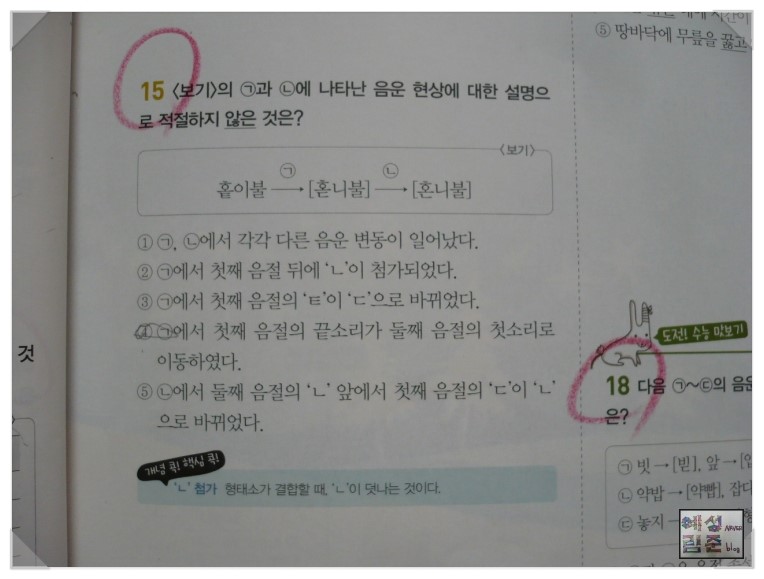 ⑤ 땅바닥에 무릎을 꿇고
15 〈보기〉의 ㉠과 ㉡에 나타난 음운 현상에 대한 설명으
로 적절하지 않은 것은?
〈보기〉
㉠ ㉡
홑이불 → [혿니불] → [혼니불]
① ㉠, ㉡에서 각각 다른 음운 변동이 일어났다.
② ㉠에서 첫째 음절 뒤에 ‘ㄴ’이 첨가되었다.
③ ㉠에서 첫째 음절의 ‘ㅌ’이 ‘ㄷ’으로 바뀌었다.
④ ㉠에서 첫째 음절의 끝소리가 둘째 음절의 첫소리로
이동하였다.
⑤ ㉡에서 둘째 음절의 ‘ㄴ’ 앞에서 첫째 음절의 ‘ㄷ’이 ‘ㄴ’
으로 바뀌었다.
개념 콕! 핵심 콕!
‘ㄴ’ 첨가 형태소가 결합할 때, ‘ㄴ’이 덧나는 것이다.
것
도전! 수능 맛보기
18 다음 ㉠~㉢의 음운
은?
㉠ 빗 → [빋], 앞 →
㉡ 약밥 → [약빱], 잡다
㉢ 놓지 →
예성
림준 blog